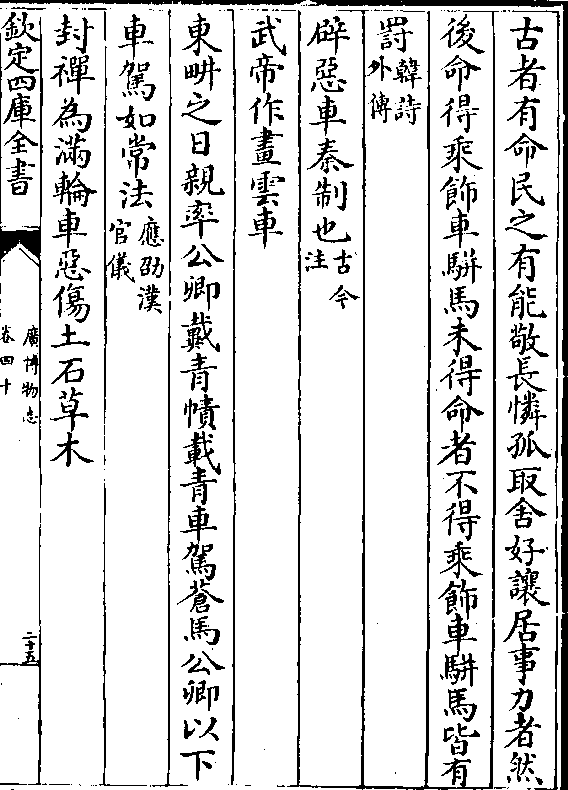 古者有命民之有能敬長憐孤取舍好讓居事力者然
後命得乘飾車駢馬未得命者不得乘飾車駢馬皆有
罰韓詩外傳
辟惡車秦制也古今注
武帝作畫雲車
東畊之日親率公卿戴青幘載青車駕蒼馬公卿以下
車駕如常法應劭漢官儀
封禪為滿輪車惡傷土石草木
欽定四庫全書
廣博物志
卷四十
二十五